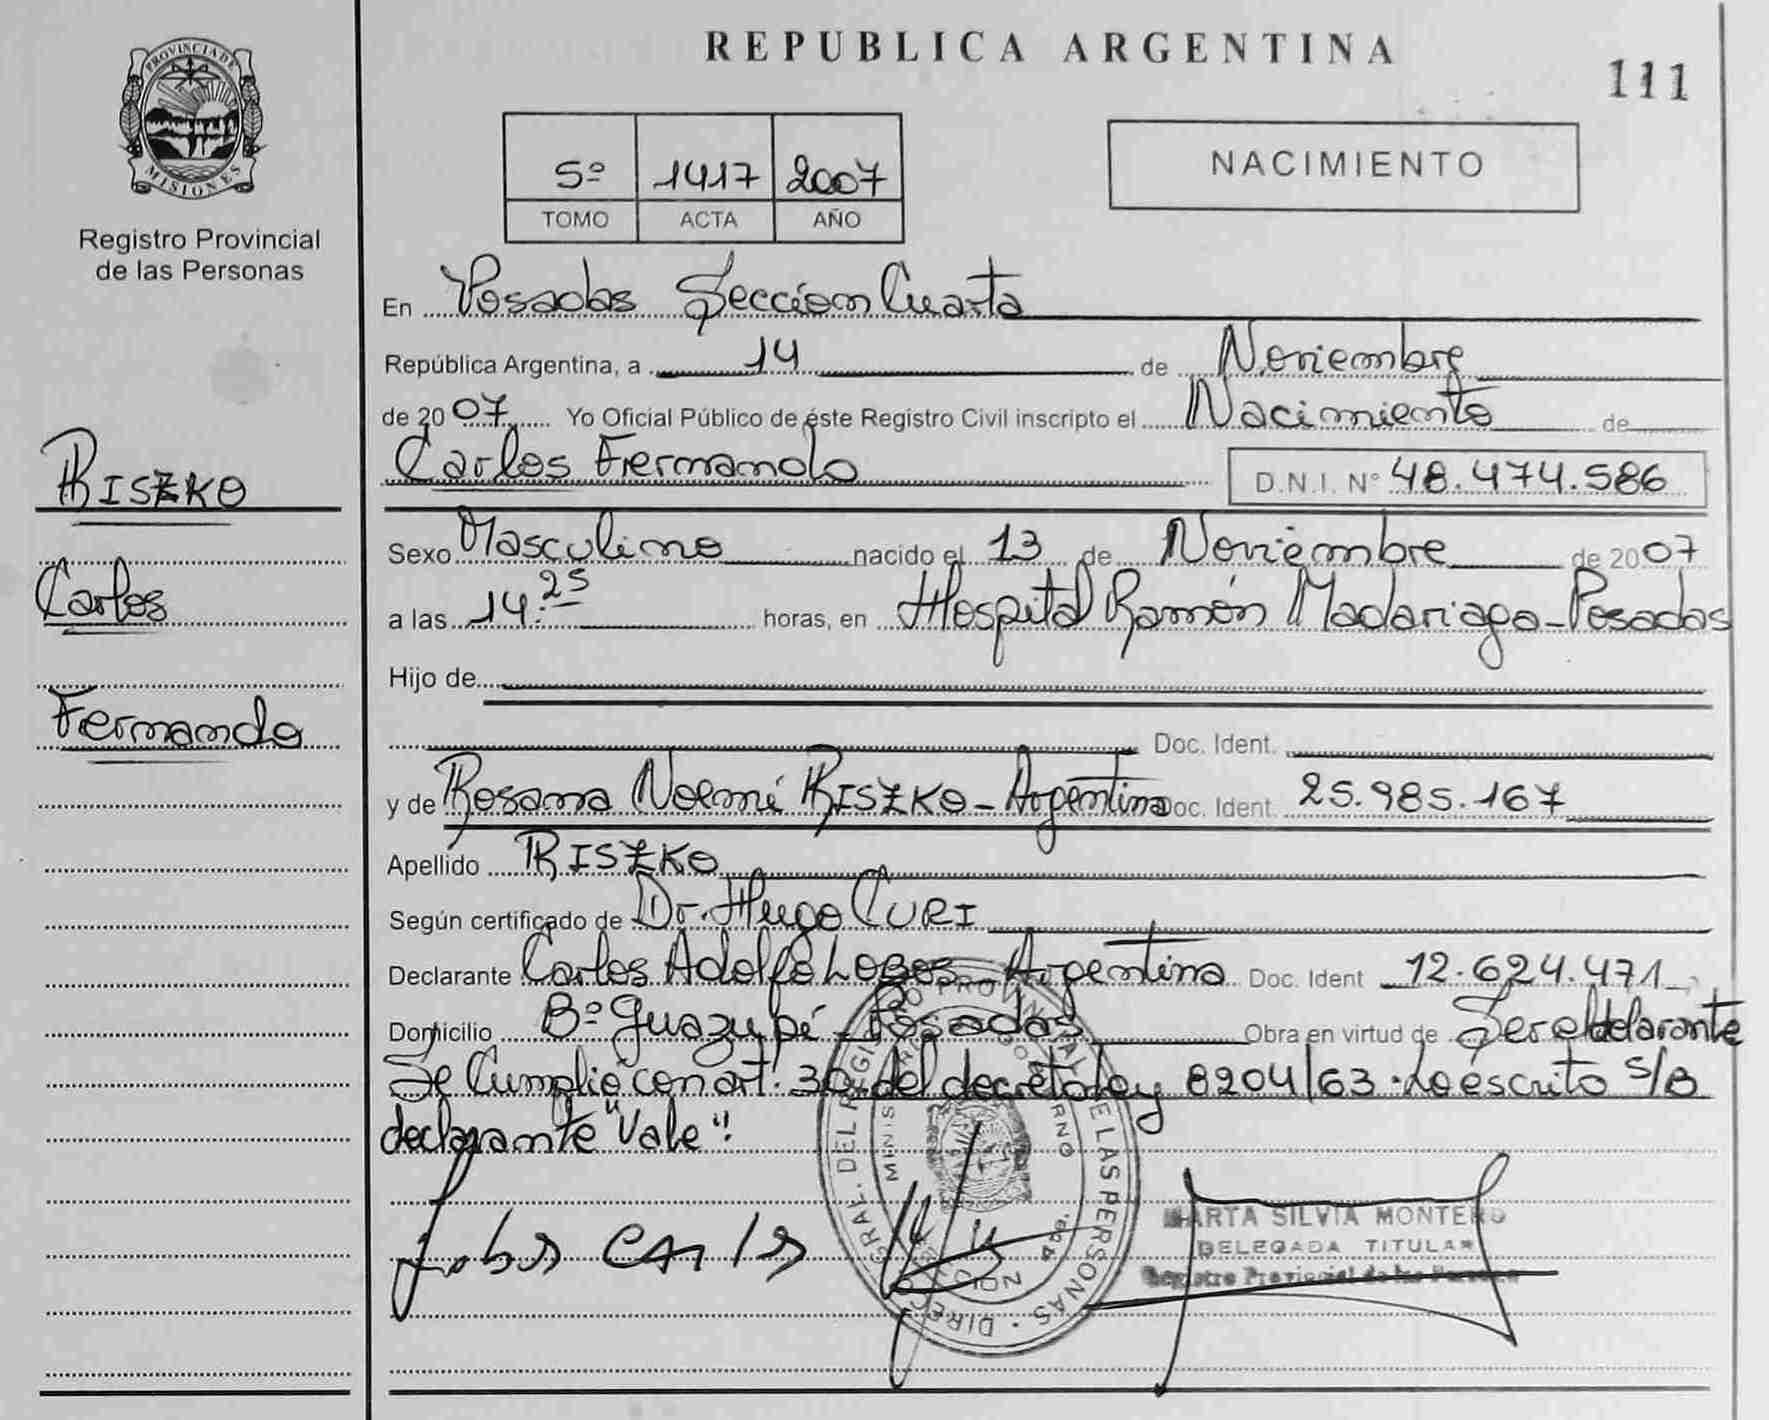 REPUBLICA ARGENTINA
111
PROVINCIA DE
MISIONES
Registro Provincial
de las Personas
5º 1417 2007
TOMO ACTA AÑO
NACIMIENTO
En Posadas Sección Cuarta
República Argentina, a 14 de Noviembre
de 2007 Yo Oficial Público de éste Registro Civil inscripto el Nacimiento de
Carlos Fernando D.N.I. Nº 48.474.586
RISZKO
Carlos
Fernando
Sexo Masculino nacido el 13 de Noviembre de 2007
a las 14:25 horas, en Hospital Ramón Madariaga - Posadas
Hijo de
Doc. Ident.
y de Rosana Noemí RISZKO - Argentina Doc. Ident. 25.985.167
Apellido RISZKO
Según certificado de Dr. Hugo CURI
Declarante Carlos Adolfo LOBOS Argentino Doc. Ident 12.624.471
Domicilio Bº Guazupí - Posadas Obra en virtud de Ser el declarante
Se Cumplió con art. 30 del decreto ley 8204/63. Lo escrito s/B
declarante "Vale".
Lobos Carlos
MARTA SILVIA MONTERO
DELEGADA TITULAR
Registro Provincial de las Personas